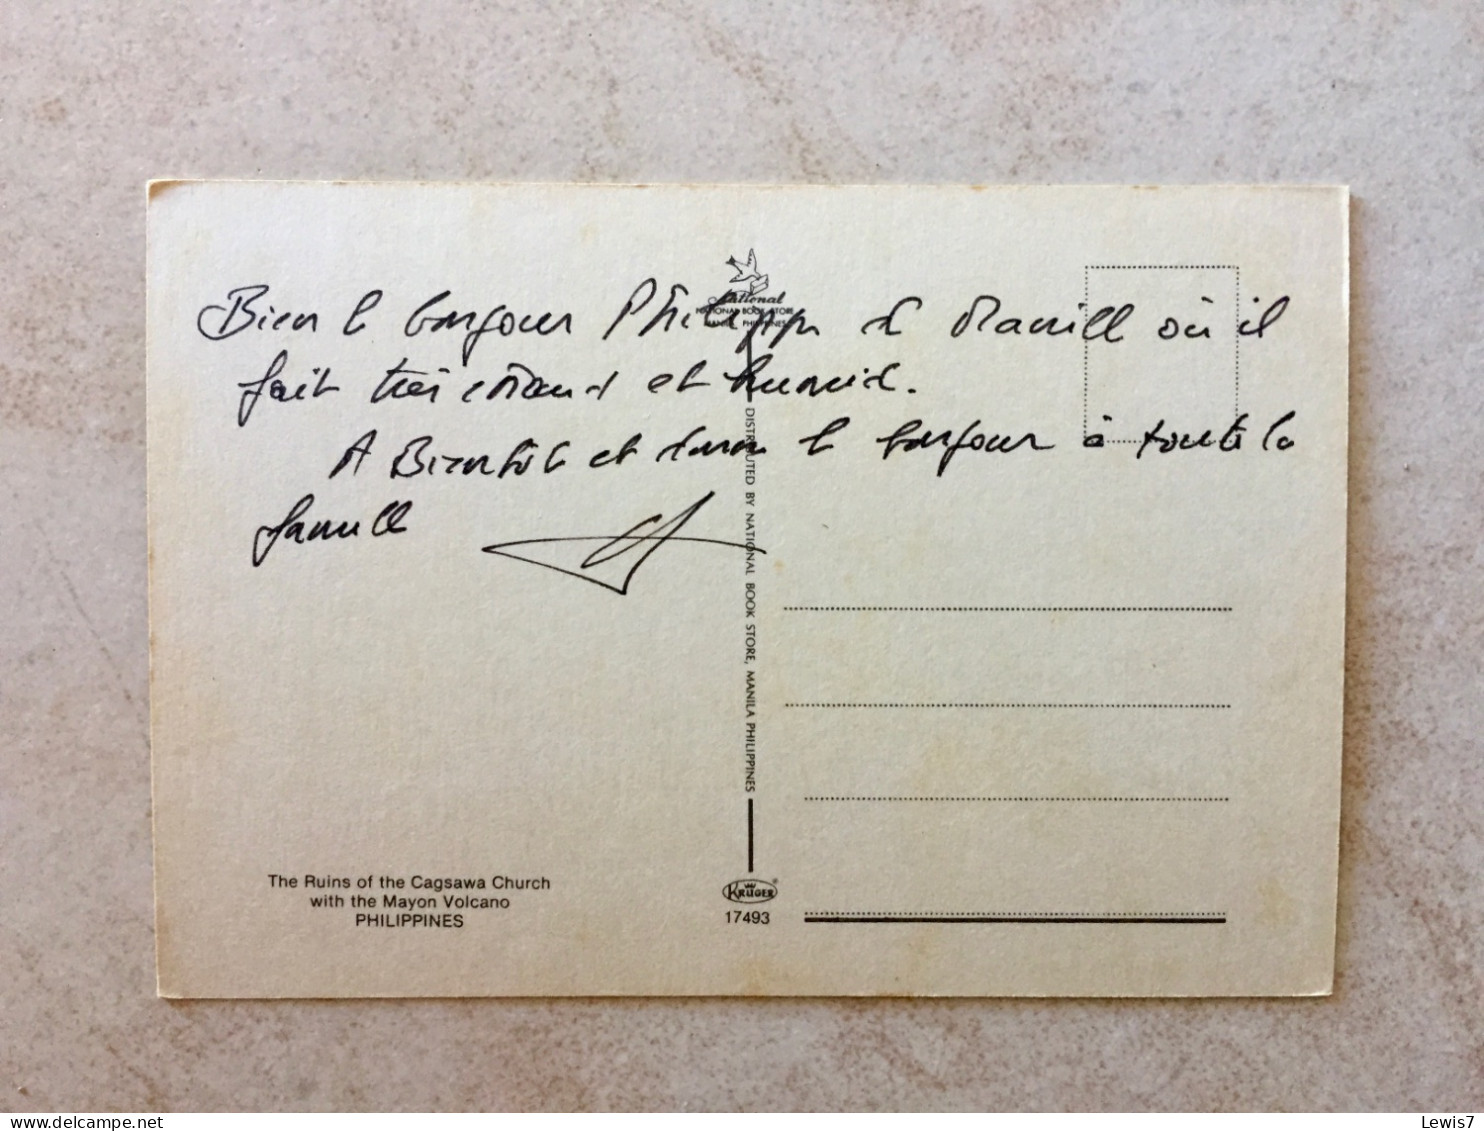 Bien le bonjour Philippe de Manille où il
fait très chaud et humide.
A Bientôt et donne le bonjour à toute la
famille
National
NATIONAL BOOK STORE
MANILA, PHILIPPINES
DISTRIBUTED BY NATIONAL BOOK STORE, MANILA PHILIPPINES
The Ruins of the Cagsawa Church
with the Mayon Volcano
PHILIPPINES
KRÜGER®
17493
delcampe.net
Lewis7